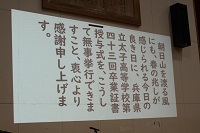 朝日山を渡る風
にも、春の兆しが
感じられる今日の
良き日に、兵庫県
立太子高等学校第
四十三回卒業証書
授与式を、こうし
て無事挙行できま
すこと、衷心より
感謝申し上げま
す。